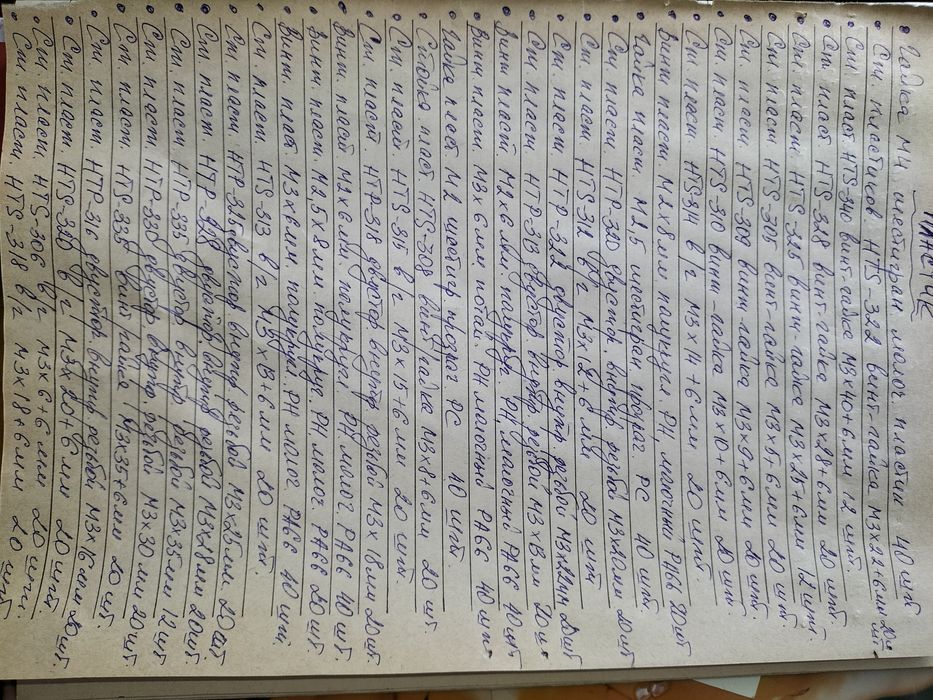 • Гайка М4 шестигран. молоч. пластик 40 шт.
• Ст. пластиков HTS-322 винт-гайка М3х22+6мм 20 шт.
• Ст. пласт HTS-340 винт-гайка М3х40+6мм 12 шт.
• Ст. пласт HTS-328 винт-гайка М3х28+6мм 20 шт.
• Ст. пласт. HTS-225 винт-гайка М3х25+6мм 12 шт.
• Ст. пласт. HTS-305 винт-гайка М3х5+6мм 20 шт.
• Ст. пласт. HTS-309 винт-гайка М3х9+6мм 20 шт.
• Ст. пласт. HTS-310 винт-гайка М3х10+6мм 20 шт.
• Ст. пласт. HTS-314 в/г М3х14+6мм 20 шт.
• Винт пласт М2х8мм полукругл РН, молочный, РА66 20 шт
• Гайка пласт. М2.5 шестигран прозрач. РС 40 шт.
• Ст. пласт. HTP-320 двустор. внутр резьбы М3х20мм 20 шт
• Ст. пласт. HTS-312 в/г М3х12+6мм 20 шт
• Ст. пласт. HTP-322 двустор внутр резьбы М3х22мм 20 шт
• Ст. пласт. HTP-313 двустор внутр резьбы М3х13мм 20 шт.
• Винт пласт. М2х6мм. полукругл. РН, молочный РА66 40 шт
• Винт пласт. М3х6мм потай РН молочный РА66 40 шт.
• Гайка пласт. М2 шестигр прозрач РС 40 шт.
• Стойка пласт HTS-308 винт-гайка М3х8+6мм 20 шт.
• Ст. пласт HTS-315 в/г М3х15+6мм 20 шт.
• Ст пласт HTP-318 двустор внутр резьбы М3х18мм 20 шт.
• Винт. пласт М2х6мм. полукругл РН молоч. РА66 40 шт
• Винт. пласт. М2,5х8мм полукругл РН молоч. РА66 20 шт
• Винт. пласт. М3х6мм. полукругл. РН молоч РА66 40 шт.
• Ст. пласт. HTS-313 в/г М3х13+6мм 20 шт.
• Ст. пласт. HTP-325 двустор внутр резьбой М3х25мм 20 шт
• Ст. пласт HTP-328 двустор внутр резьбой М3х28мм 20 шт.
• Ст. пласт HTP-335 двустор внутр резьбой М3х35мм 12 шт
• Ст. пласт. HTP-330 двустор внутр резьбой М3х30мм 20 шт
• Ст. пласт. HTS-335 винт-гайка М3х35+6мм 20 шт.
• Ст. пласт. HTP-316 двустор. внутр резьбой М3х16мм 20 шт.
• Ст. пласт. HTS-320 в/г М3х20+6мм 20 шт.
• Ст. пласт. HTS-306 в/г М3х6+6мм 20 шт.
• Ст. пласт. HTS-318 в/г М3х18+6мм 20 шт